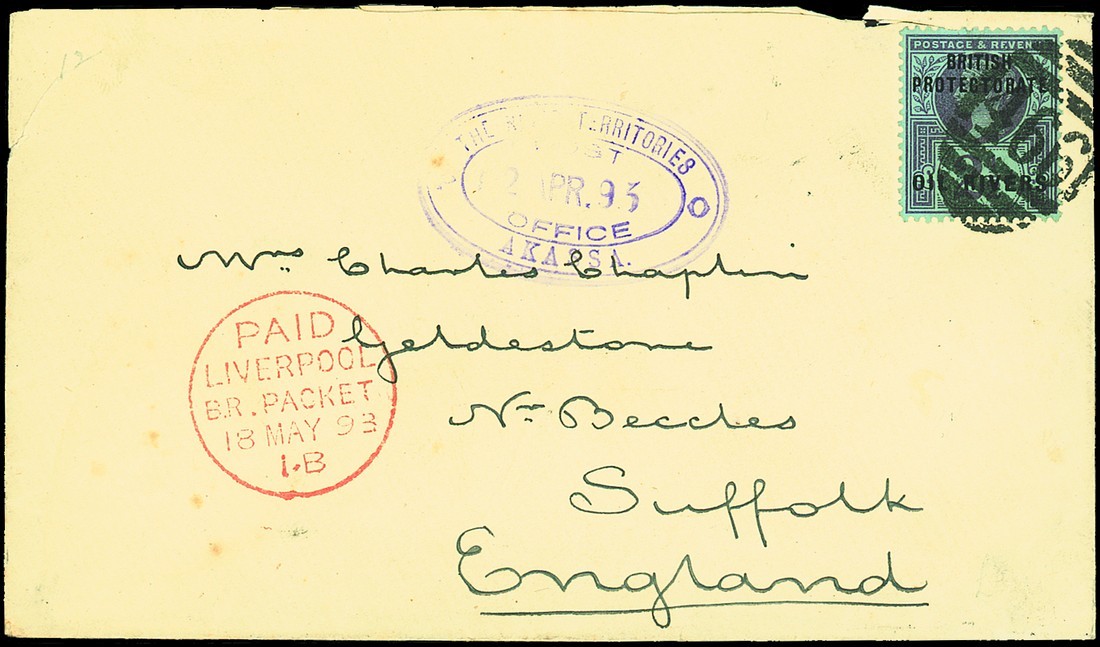 12
POSTAGE & REVENUE
BRITISH
PROTECTORATE
OIL RIVERS
THE NIGER TERRITORIES
POST
2 APR. 93
OFFICE
AKASSA.
Mrs Charles Chaplin
Geldestone
Nr Beccles
Suffolk
England
PAID
LIVERPOOL
BR. PACKET
18 MAY 93
1·B